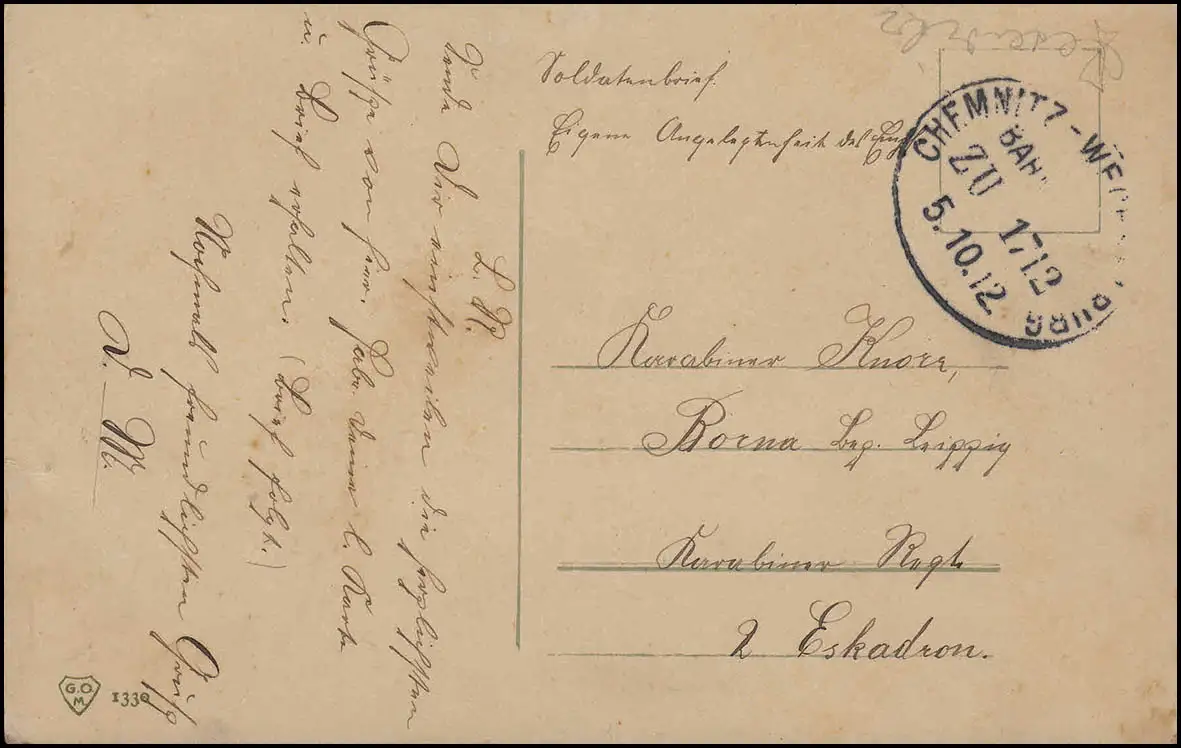 Soldatenbrief.
Eigene Angelegenheit des Empf
CHEMNITZ-WECH BURG
BAHN
ZU 1712
5.10.12
Karabiner Knorr,
Borna Bez. Leipzig
Karabiner Regt
2 Eskadron.
L. N.
Sende Dir einstweilen die herzlichsten
Grüße von hier. Habe Deine l. Karte
u. Brief erhalten. (Brief folgt.)
Nochmals freundlichsten Gruß
D. M.
G.O.M. 1339